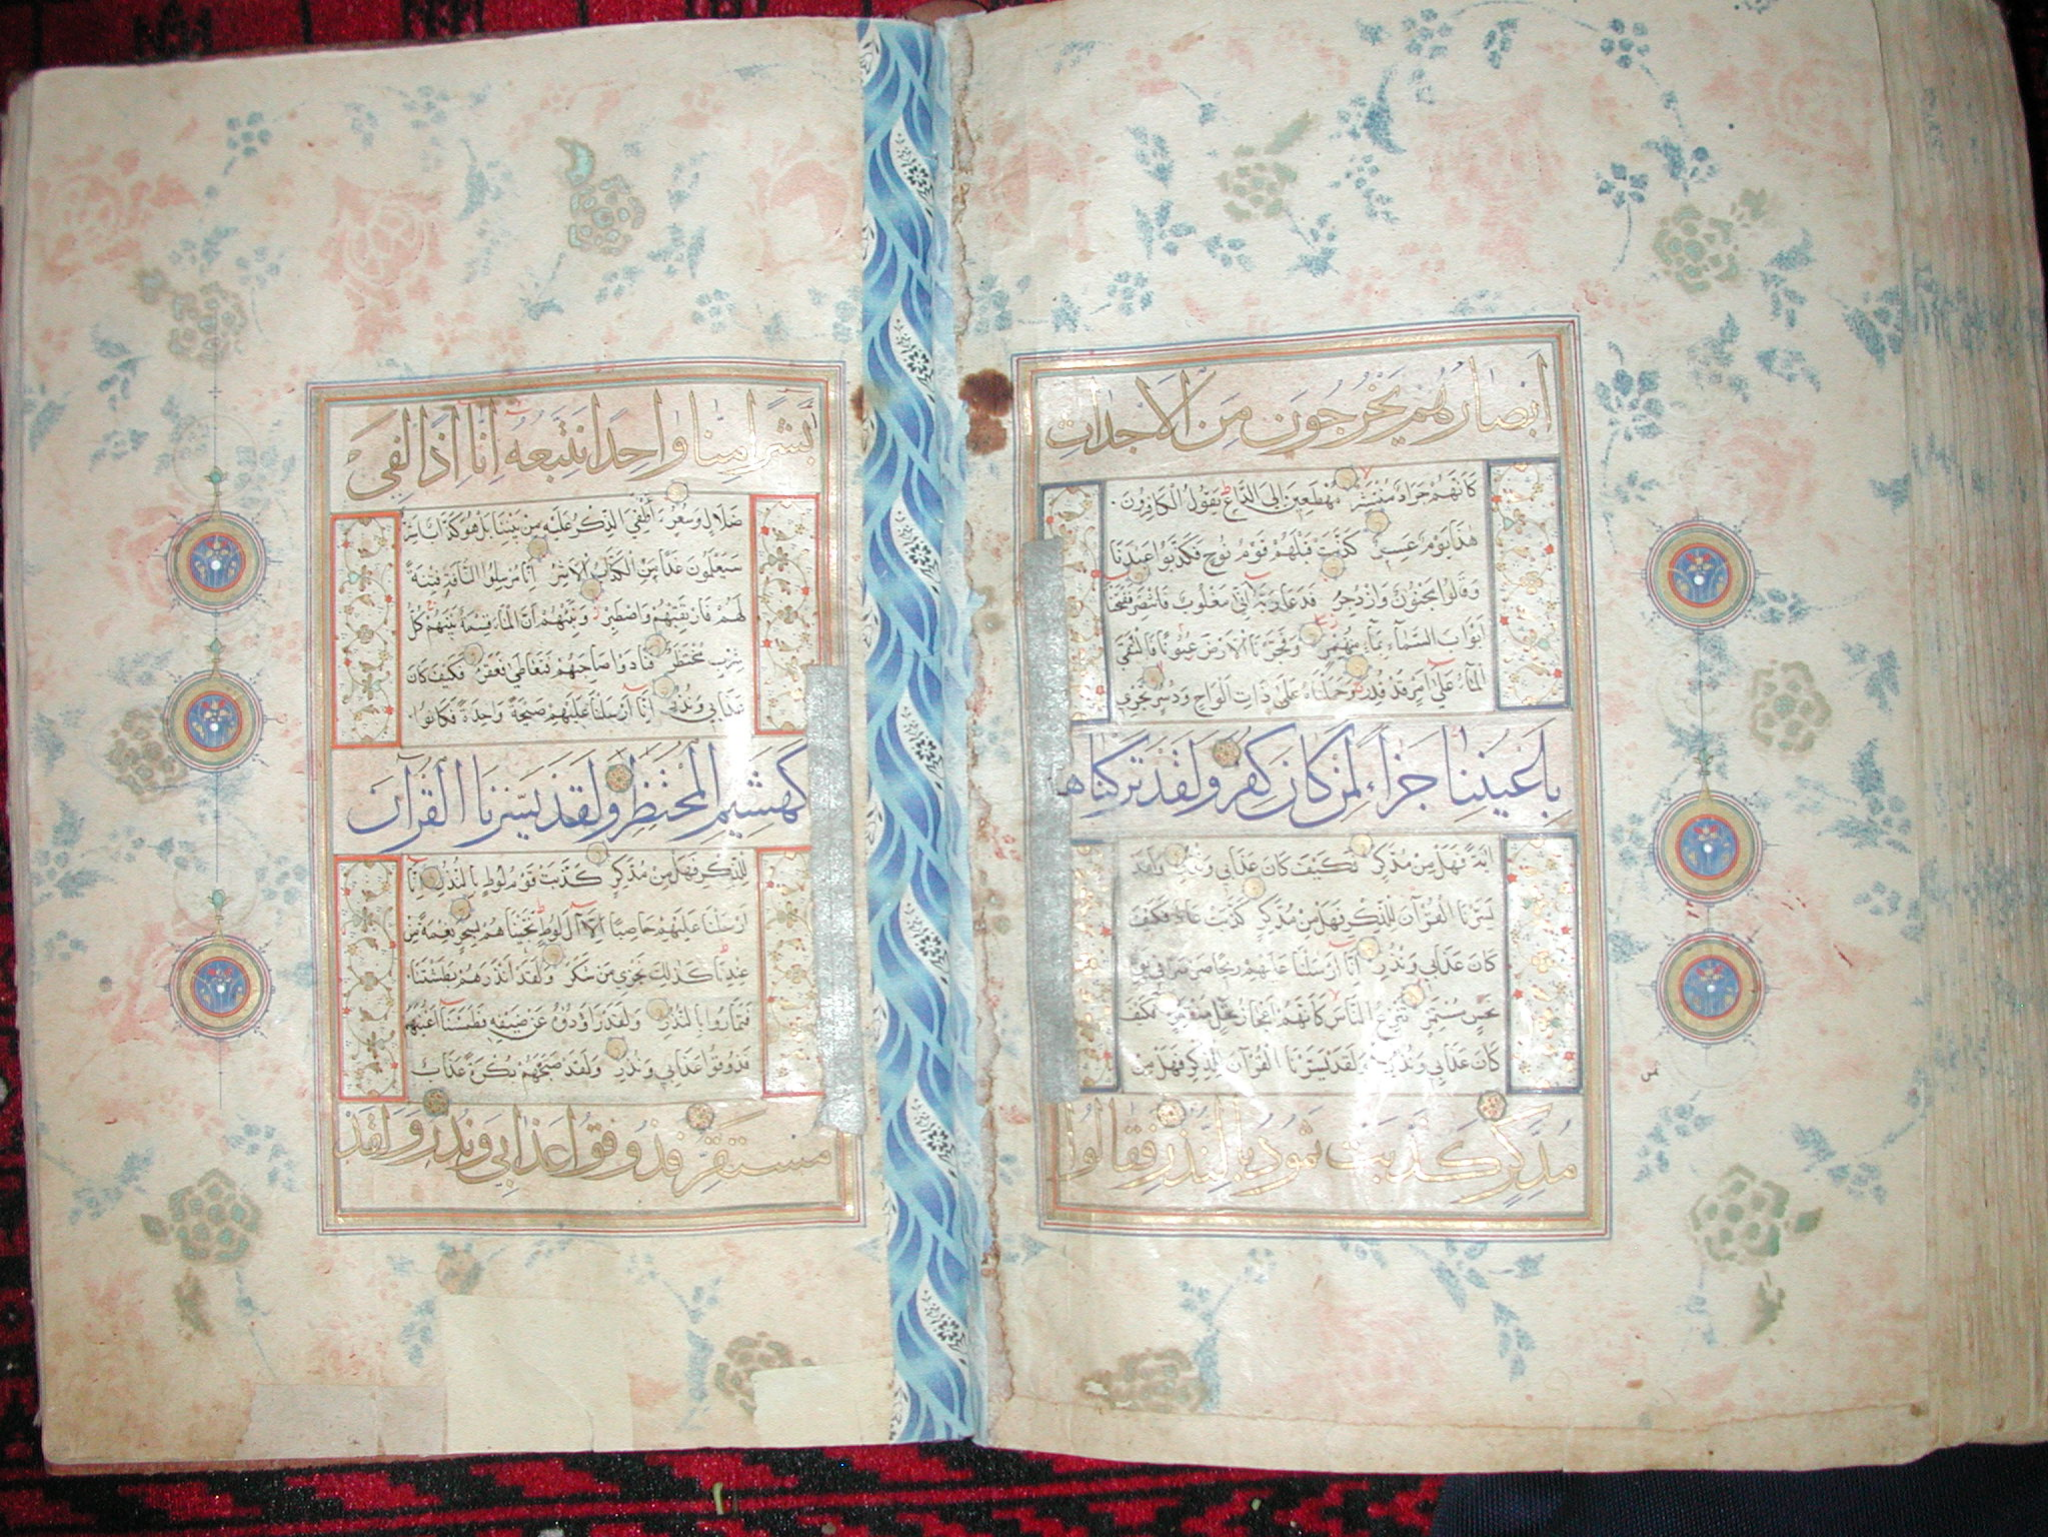 أَبْصَارُهُمْ يَخْرُجُونَ مِنَ الْاَجْدَاثِ
كَاَنَّهُمْ جَرَادٌ مُنْتَشِرٌ مُهْطِعِينَ اِلَى الدَّاعِ يَقُولُ الْكَافِرُونَ
هٰذَا يَوْمٌ عَسِرٌ كَذَّبَتْ قَبْلَهُمْ قَوْمُ نُوحٍ فَكَذَّبُوا عَبْدَنَا
وَقَالُوا مَجْنُونٌ وَازْدُجِرَ فَدَعَا رَبَّهُ اَنِّي مَغْلُوبٌ فَانْتَصِرْ فَفَتَحْنَا
اَبْوَابَ السَّمَاءِ بِمَاءٍ مُنْهَمِرٍ وَفَجَّرْنَا الْاَرْضَ عُيُونًا فَالْتَقَى
الْمَاءُ عَلٰى اَمْرٍ قَدْ قُدِرَ وَحَمَلْنَاهُ عَلٰى ذَاتِ اَلْوَاحٍ وَدُسُرٍ تَجْرِي
بِاَعْيُنِنَا جَزَاءً لِمَنْ كَانَ كُفِرَ وَلَقَدْ تَرَكْنَاهَا
اٰيَةً فَهَلْ مِنْ مُدَّكِرٍ فَكَيْفَ كَانَ عَذَابِي وَنُذُرِ وَلَقَدْ
يَسَّرْنَا الْقُرْاٰنَ لِلذِّكْرِ فَهَلْ مِنْ مُدَّكِرٍ كَذَّبَتْ عَادٌ فَكَيْفَ
كَانَ عَذَابِي وَنُذُرِ اِنَّا اَرْسَلْنَا عَلَيْهِمْ رِيحًا صَرْصَرًا فِي يَوْمِ
نَحْسٍ مُسْتَمِرٍّ تَنْزِعُ النَّاسَ كَاَنَّهُمْ اَعْجَازُ نَخْلٍ مُنْقَعِرٍ فَكَيْفَ
كَانَ عَذَابِي وَنُذُرِ وَلَقَدْ يَسَّرْنَا الْقُرْاٰنَ لِلذِّكْرِ فَهَلْ مِنْ
مُدَّكِرٍ كَذَّبَتْ ثَمُودُ بِالنُّذُرِ فَقَالُوا
أَبَشَرًا مِنَّا وَاحِدًا نَتَّبِعُهُ اِنَّا اِذًا لَفِي
ضَلَالٍ وَسُعُرٍ ءَأُلْقِيَ الذِّكْرُ عَلَيْهِ مِنْ بَيْنِنَا بَلْ هُوَ كَذَّابٌ اَشِرٌ
سَيَعْلَمُونَ غَدًا مَنِ الْكَذَّابُ الْاَشِرُ اِنَّا مُرْسِلُوا النَّاقَةِ فِتْنَةً
لَهُمْ فَارْتَقِبْهُمْ وَاصْطَبِرْ وَنَبِّئْهُمْ اَنَّ الْمَاءَ قِسْمَةٌ بَيْنَهُمْ كُلُّ
شِرْبٍ مُحْتَضَرٌ فَنَادَوْا صَاحِبَهُمْ فَتَعَاطٰى فَعَقَرَ فَكَيْفَ كَانَ
عَذَابِي وَنُذُرِ اِنَّا اَرْسَلْنَا عَلَيْهِمْ صَيْحَةً وَاحِدَةً فَكَانُوا
كَهَشِيمِ الْمُحْتَظِرِ وَلَقَدْ يَسَّرْنَا الْقُرْاٰنَ
لِلذِّكْرِ فَهَلْ مِنْ مُدَّكِرٍ كَذَّبَتْ قَوْمُ لُوطٍ بِالنُّذُرِ اِنَّا
اَرْسَلْنَا عَلَيْهِمْ حَاصِبًا اِلَّا اٰلَ لُوطٍ نَجَّيْنَاهُمْ بِسَحَرٍ نِعْمَةً مِنْ
عِنْدِنَا كَذٰلِكَ نَجْزِي مَنْ شَكَرَ وَلَقَدْ اَنْذَرَهُمْ بَطْشَتَنَا
فَتَمَارَوْا بِالنُّذُرِ وَلَقَدْ رَاوَدُوهُ عَنْ ضَيْفِهِ فَطَمَسْنَا اَعْيُنَهُمْ
فَذُوقُوا عَذَابِي وَنُذُرِ وَلَقَدْ صَبَّحَهُمْ بُكْرَةً عَذَابٌ
مُسْتَقِرٌّ فَذُوقُوا عَذَابِي وَنُذُرِ وَلَقَدْ